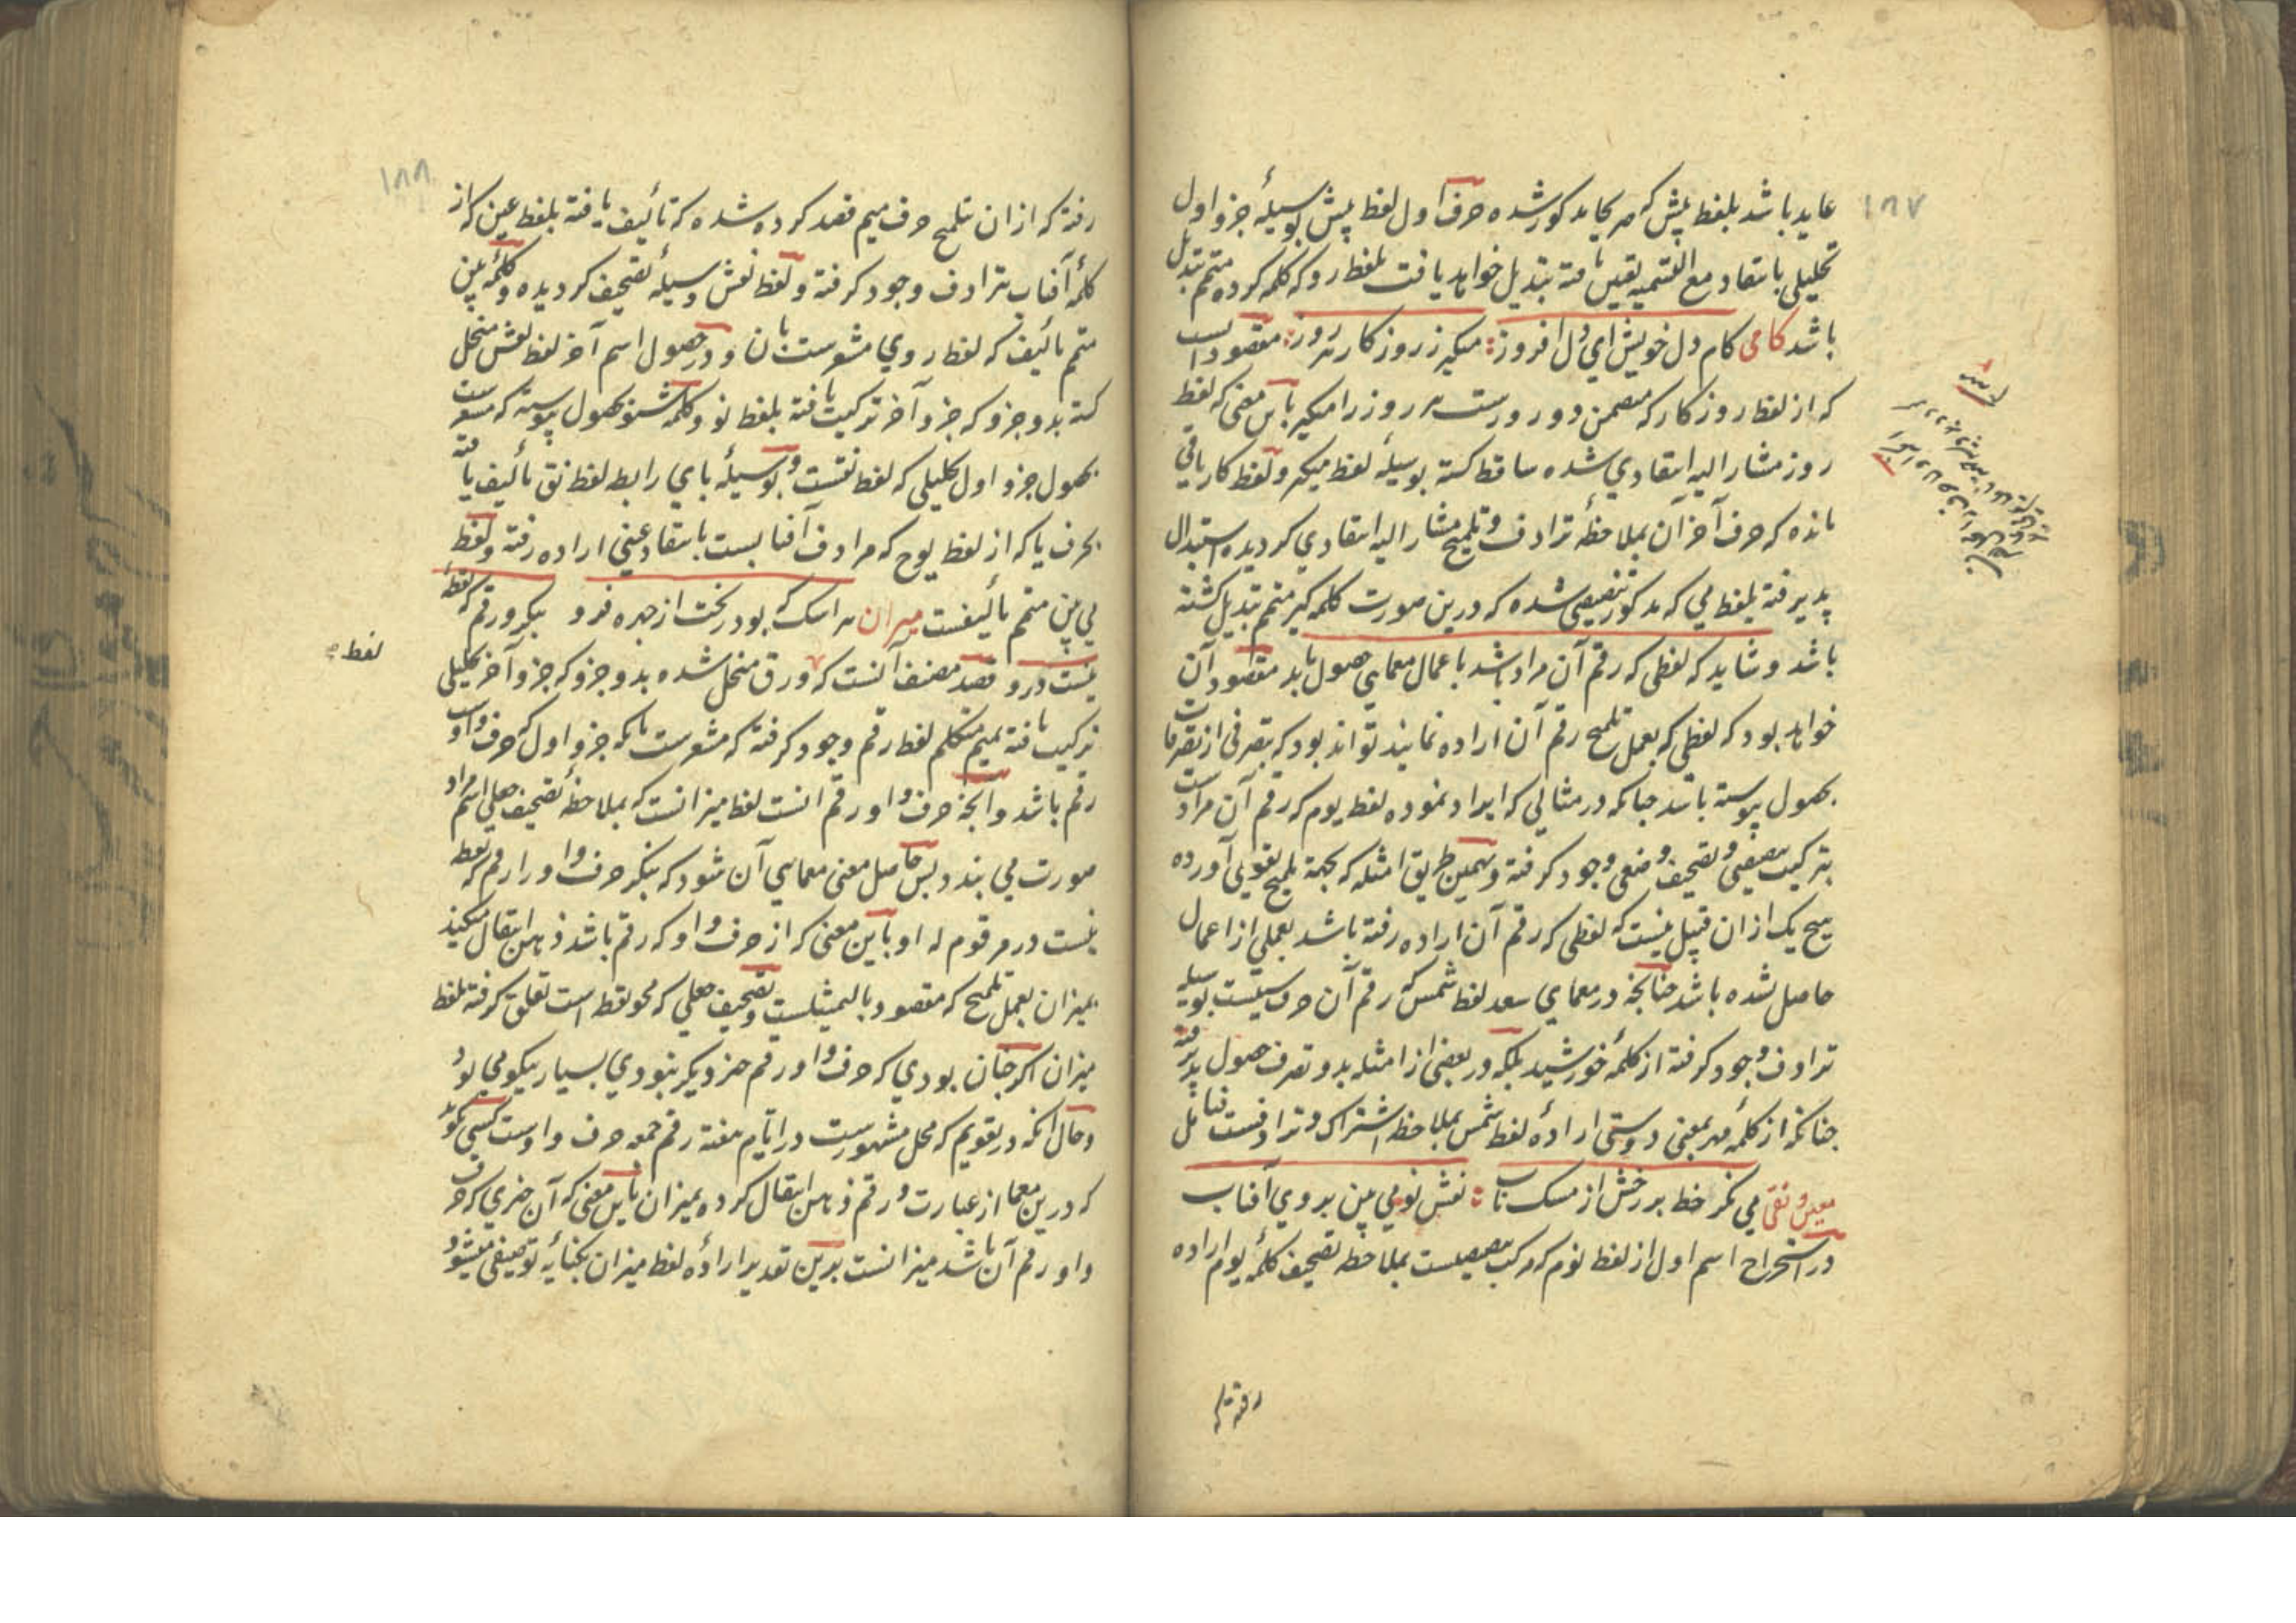 ۱۸۷
عاید باشد بلفظ پیش که هر یک مذکور شده حرف اول لفظ پیش بوسیلهٔ جزو اول
تحلیلی بانتقاد مع التسمیه تعیین یافته تبدیل خواهد یافت بلفظ رو که کلمه کرده متمم تبدیل
باشد کامی کام دل خویش ای دل افروز میگیر ز روز کار هر روز مقصود آنست
که از لفظ روز کار که متضمن دو روزست هر روز را میگیر باین معنی که لفظ
روز مشار الیه انتقادی شده ساقط کشته بوسیلهٔ لفظ میگیر و لفظ کار باقی
مانده که حرف آخر آن بملاحظهٔ ترادف و تلمیح مشار الیه انتقادی کردیده استبدال
پذیرفته بلفظ می که مذکور شده که درین صورت کلمه کیر متمم تبدیل کشته
باشد و شاید که لفظی که رقم آن مراد باشد باعمال معمایی حصول یابد مقصود آن
خواهد بود که لفظی که بعمل تلمیح رقم آن اراده نمایند تواند بود که بتصرفی از تصرفات
بحصول پیوسته باشد چنانکه در مثالی که ایراد نموده لفظ یوم که رقم آن مرادست
بترکیب تنصیفی و تصحیف وضعی وجود کرفته و بهمین طریق امثله که بجهة تلمیح تقویمی آورده
هیچ یک از ان قبیل نیست که لفظی که رقم آن اراده رفته باشد بعملی از اعمال
حاصل نشده باشد چنانچه در معمای سعد لفظ شمس که رقم آن حرف سینست بوسیلهٔ
ترادف وجود کرفته از کلمهٔ خورشید بلکه در بعضی از امثله بدو تصرف حصول پذیرفته
چنانکه از کلمهٔ مهر بمعنی دوستی ارادهٔ لفظ شمس بملاحظهٔ اشتراک و ترادفست فتامل
معین و نقی می نکر خط بر رخش از مسک ناب نقش نو می بین بر وی آفتاب
در استخراج اسم اول از لفظ نوم که مرکب تنصیفیست بملاحظهٔ تصحیف کلمهٔ یوم اراده
رفته که
۱۸۸
رفته که از ان تلمیح حرف میم قصد کرده شده که تألیف یافته بلفظ عین که از
کلمهٔ آفتاب بترادف وجود کرفته و لفظ نقش وسیلهٔ تصحیف کردیده و کلمهٔ بین
متمم تألیف که لفظ روی مشعرست بآن و در حصول اسم آخر لفظ نقش منحل
کشته بدو جزو که جزو آخر ترکیب یافته بلفظ نو و کلمهٔ شنو بحصول پیوسته که مشعرست
بحصول جزو اول تحلیلی که لفظ نقست و بوسیلهٔ بای رابط لفظ نق تألیف یافته
بحرف یا که از لفظ یوح که مرادف آفتابست بانتقاد عینی اراده رفته و لفظ
می بین متمم تألیفست میران هر اسک که بود ریخت از چهره فرو بنکر ورقم که لفظ
نیست درو قصد مصنف آنست که ورق منحل شده بدو جزو که جزو آخر تحلیلی
ترکیب یافته بمیم متکلم لفظ رقم وجود کرفته که مشعرست بآنکه جزو اول که حرف واوست
رقم باشد و آنچه حرف واو رقم آنست لفظ میزانست که بملاحظهٔ تصحیف جعلی اسم مراد
صورت می بندد پس حاصل معنی معمایی آن شود که بنکر حرف واو را رقم که نقط
نیست در مرقوم له او باین معنی که از حرف واو که رقم باشد ذهن انتقال میکند
بمیزان بعمل تلمیح که مقصود بالتمثیلست و تصحیف جعلی که محو نقط است تعلق کرفته بلفظ
میزان اکر چنان بودی که حرف واو رقم چیز دیکر نبودی بسیار نیکو می بود
و حال آنکه در تقویم که محل مشهورست در ایام هفته رقم جمعه حرف واوست کسی نکوید
که درین معما از عبارت ورقم ذهن انتقال کرده بمیزان باین معنی که آن چیزی که حرف
واو رقم آن باشد میزانست برین تقدیر ارادهٔ لفظ میزان بکنایهٔ توصیفی میشود
لفظ